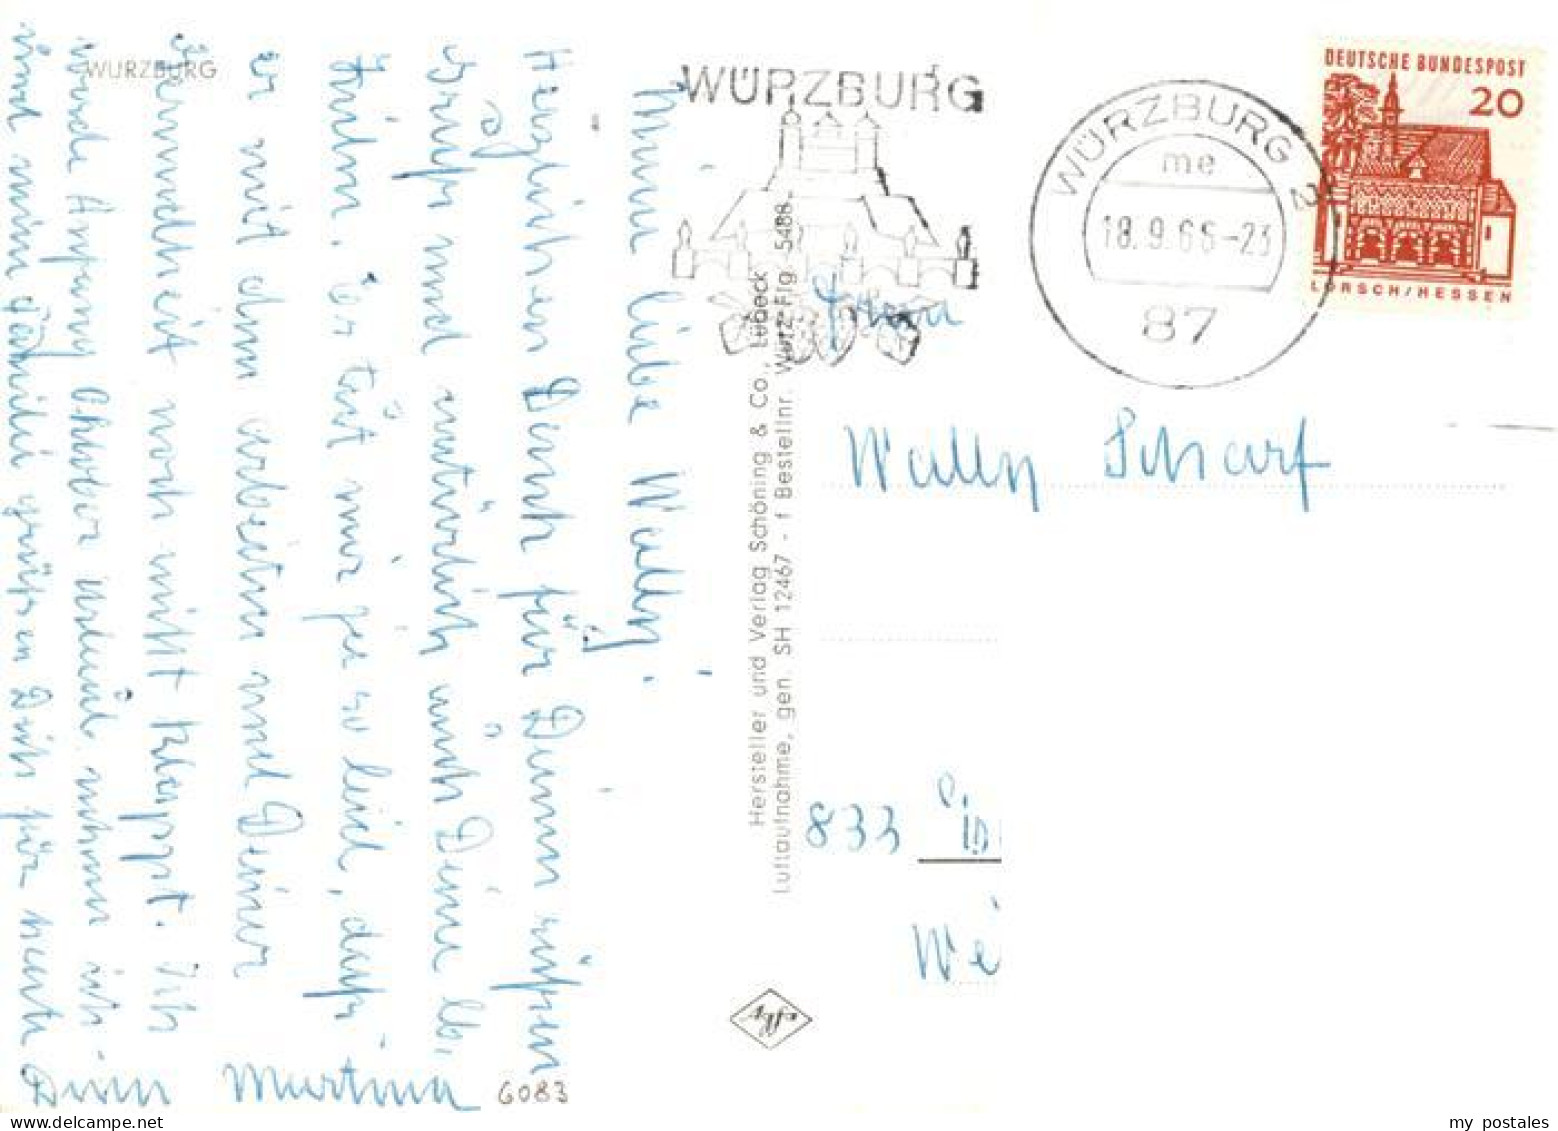 WÜRZBURG
Meine liebe Wally!
Herzlichen Dank für Deinen süßen
Gruß und natürlich auch Deine lb.
Zeilen. Es tut mir ja so leid, daß
er mit dem arbeiten und Deiner
noch nicht klappt. Ich
werde Anfang Oktober Urlaub nehmen
und meine Familie grüßen Dich für heute
Deine Martina
6083
Hersteller und Verlag Schöning & Co., Lübeck
Luftaufnahme, gen. SH 12467 - f Bestellnr. Würz Flg 5488
WÜRZBURG
WÜRZBURG 2
me
18.9.66-23
87
DEUTSCHE BUNDESPOST
20
LORSCH/HESSEN
Wally Scharf
833
We
my postales